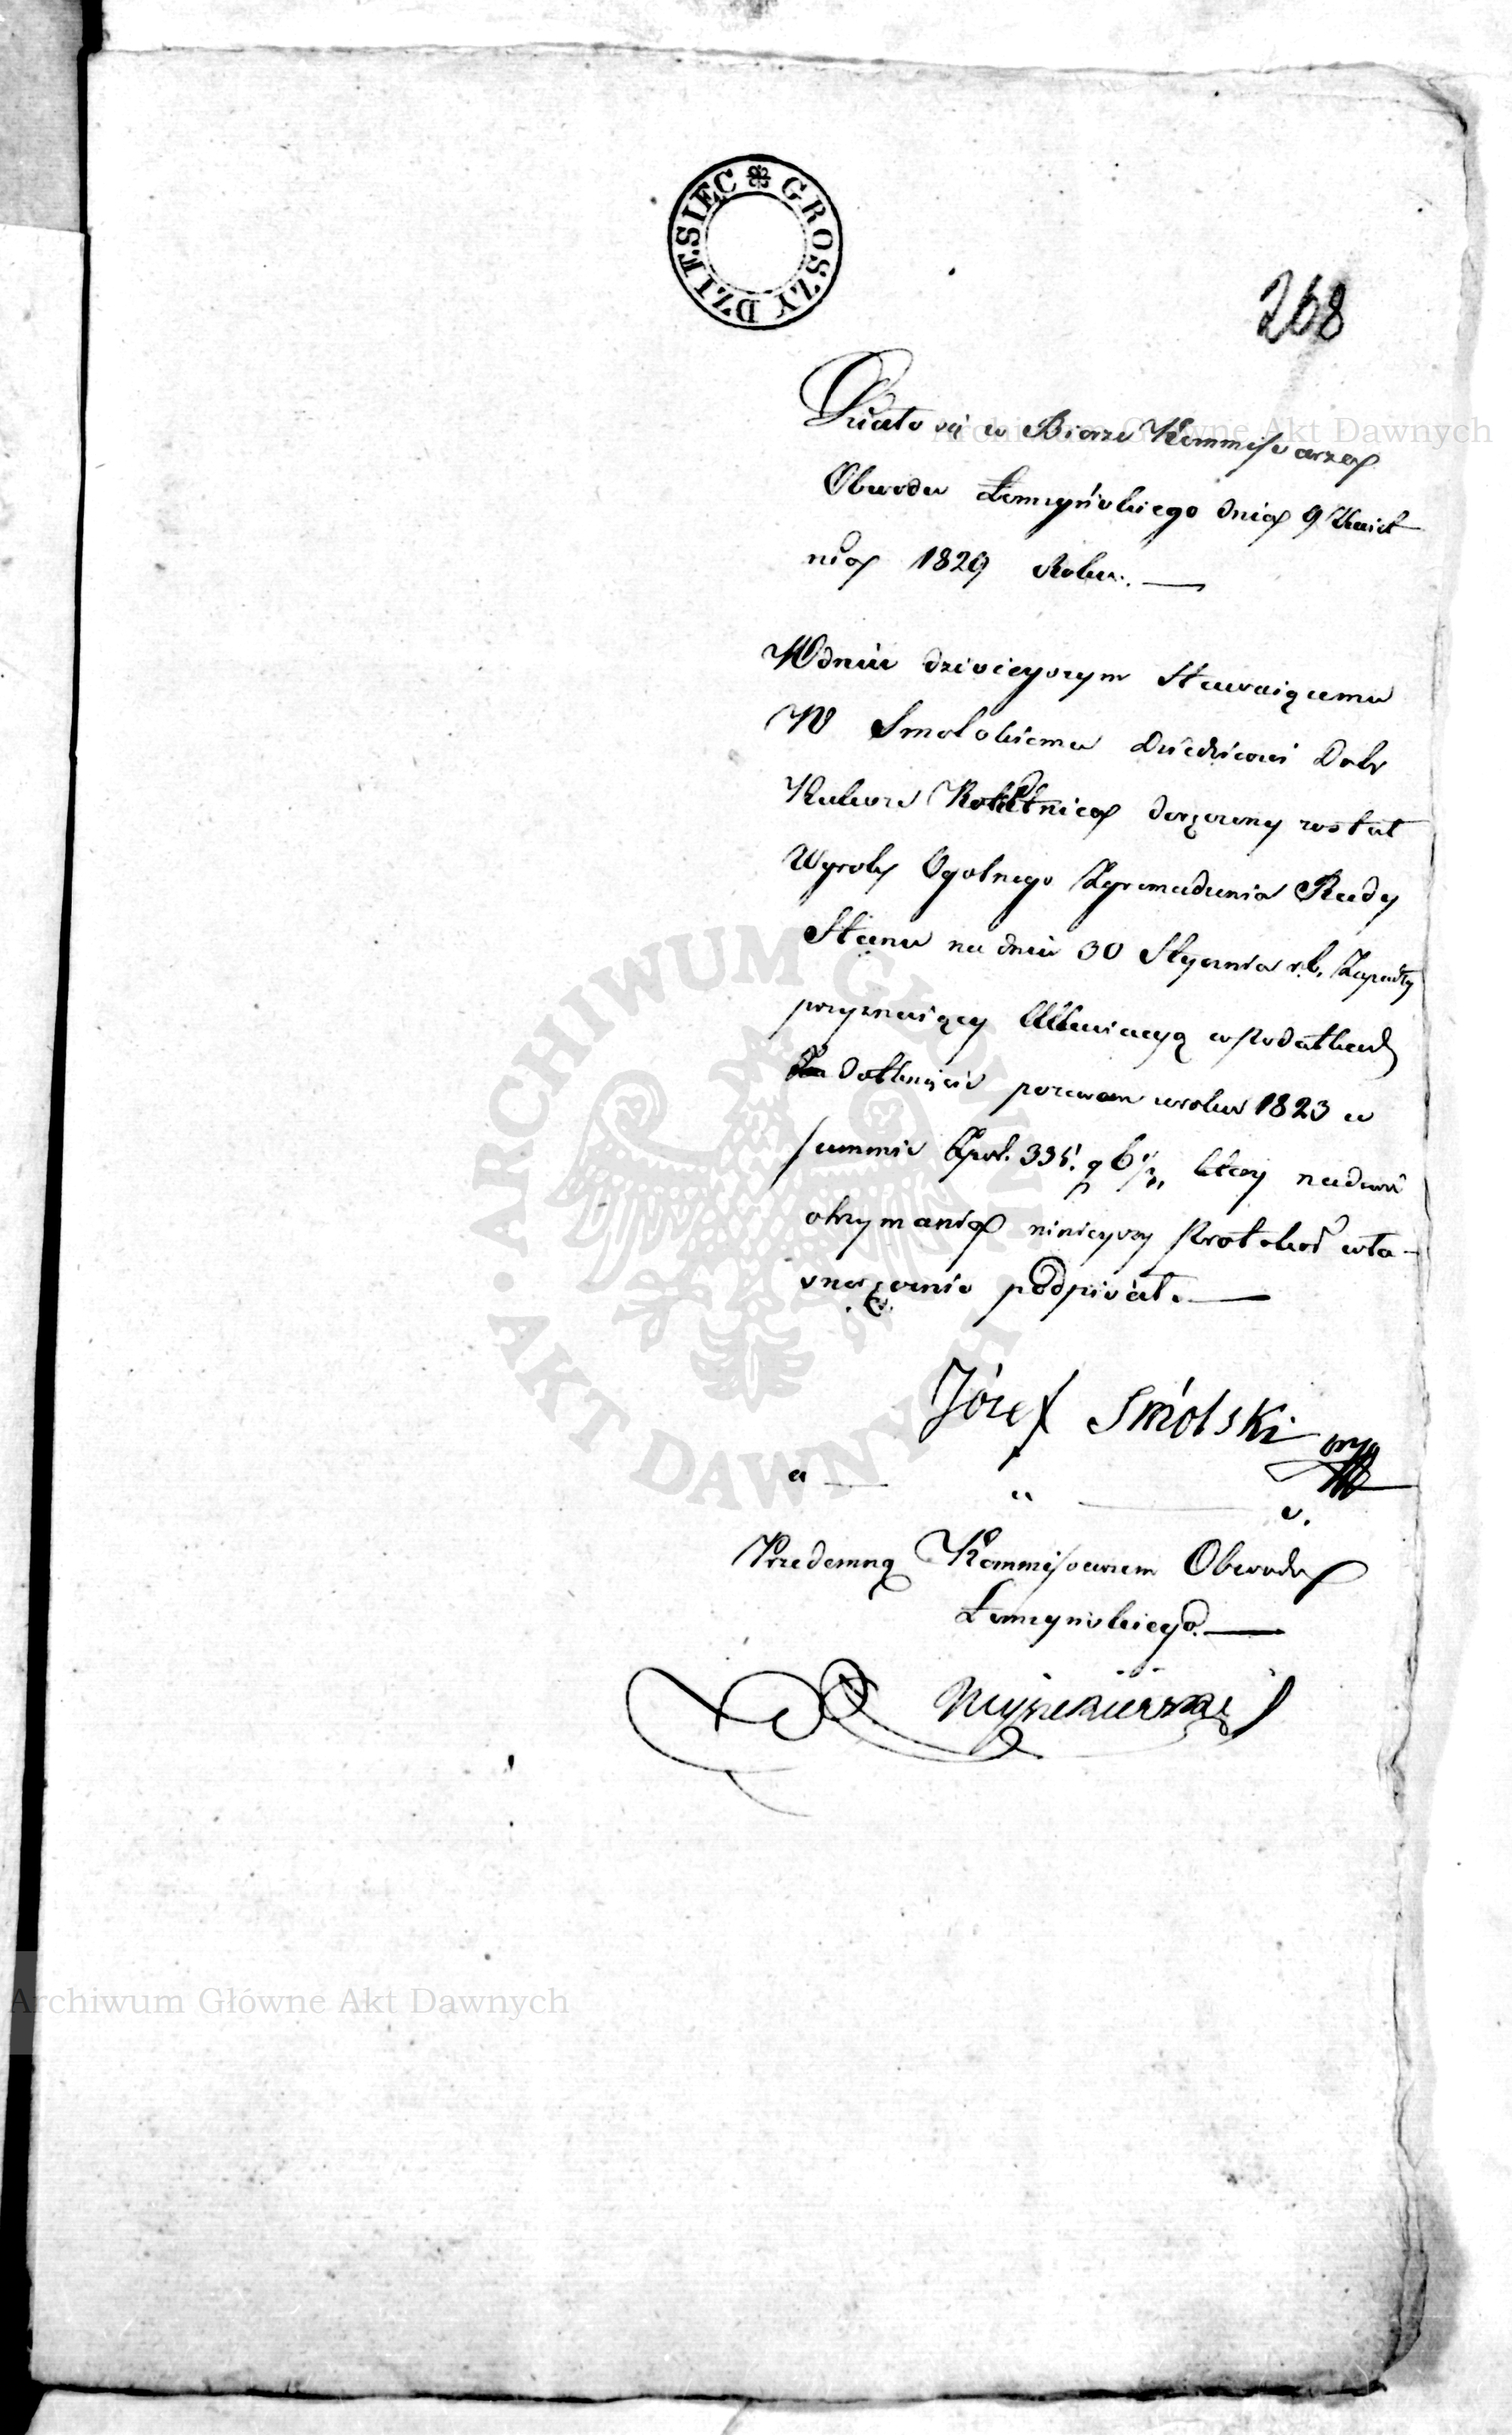 DZIESIĘC GROSZY
268
Działo się w Biorze Kommissarza
Obwodu Łomżyńskiego dnia 9 Kwiet
nia 1829 Roku.
W dniu dzisieyszym Stawaiącemu
W Smolskiemu Dziedzicowi Dobr
doręczony został
Wyrok Ogolnego Zgromadzenia Rady
Stanu na dniu 30 Stycznia r.b. Zapadły
przyznaiący w podatkach
dotknięcie w roku 1823 w
summie Zpol. 335. g 6 1/3, który na dowód
otrzymania ninieyszy Protokoł wła-
snoręcznie podpisał.
Józef Smólski
Przedemną Kommissarzem Obwodu
Łomżynskiego.
Archiwum Główne Akt Dawnych
ARCHIWUM GŁÓWNE
AKT DAWNYCH
Archiwum Główne Akt Dawnych